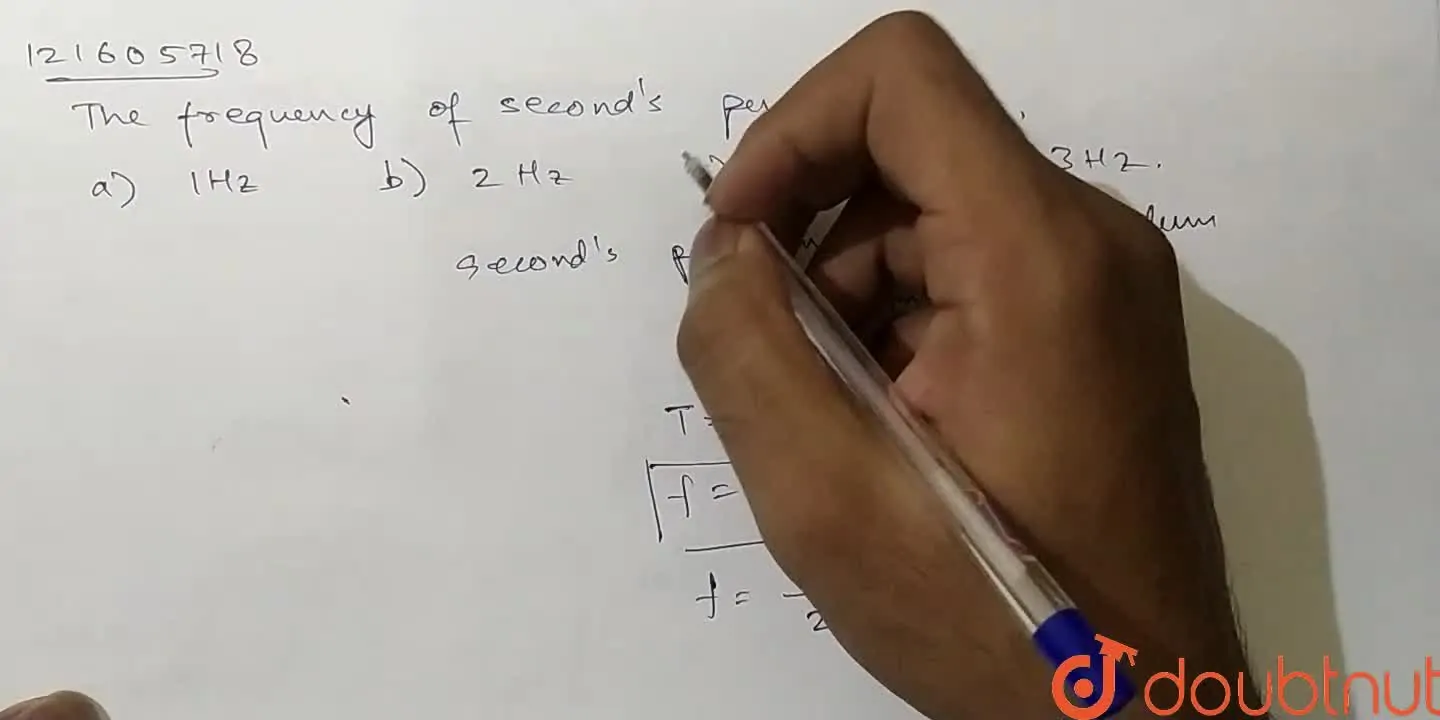 121605718
The frequency of second's
a) 1Hz b) 2 Hz 3HZ.
second's
T=
f=
f= 2
doubtnut